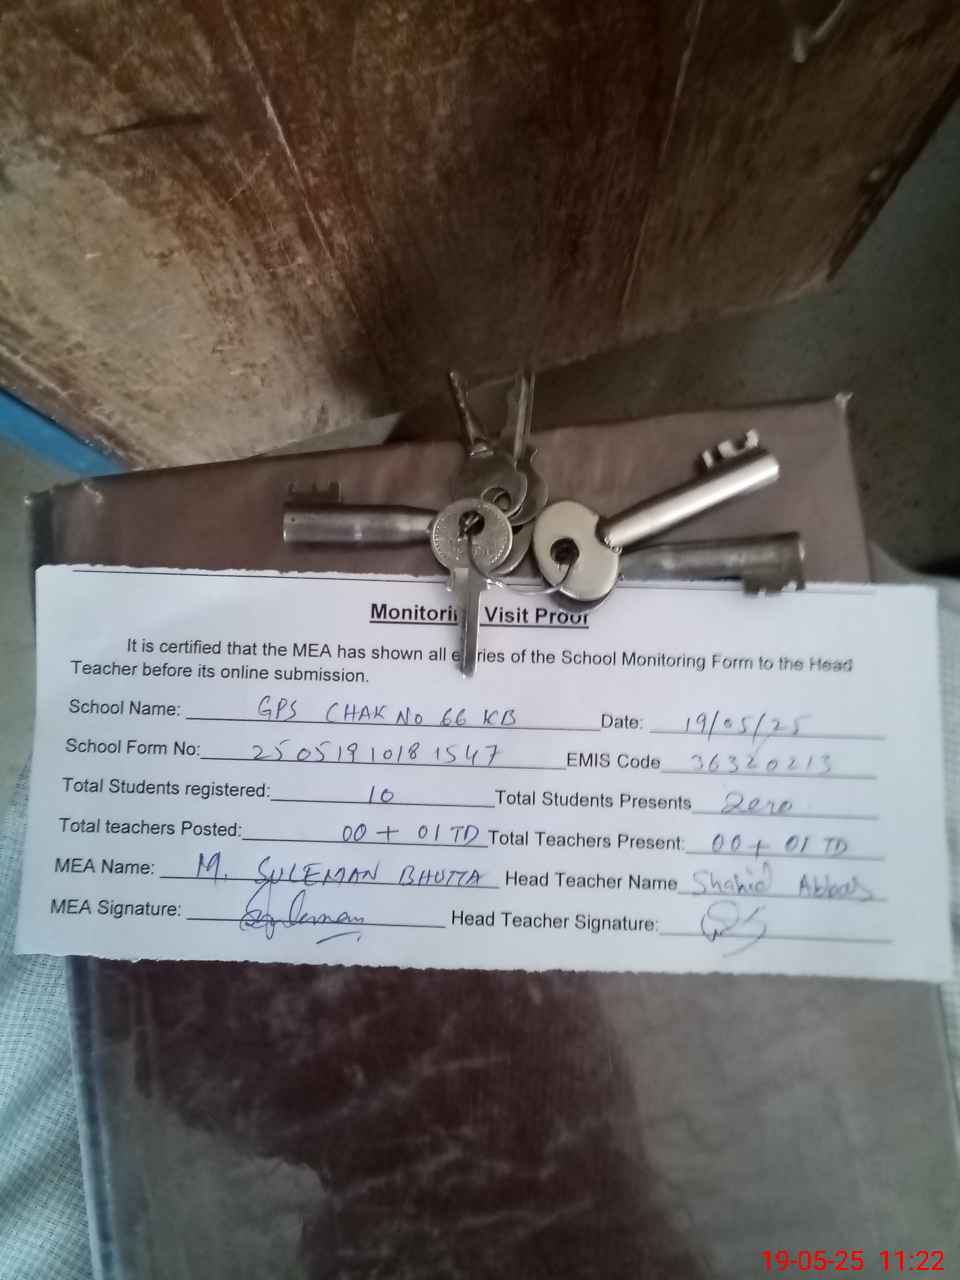 Monitori Visit Proof
It is certified that the MEA has shown all e ries of the School Monitoring Form to the Head
Teacher before its online submission.
School Name: GPS CHAK No 66 KB Date: 19/05/25
School Form No: 2505191018 1547 EMIS Code 36320213
Total Students registered: 10 Total Students Presents Zero
Total teachers Posted: 00 + 01 TD Total Teachers Present: 00 + 01 TD
MEA Name: M. SULEMAN BHUTTA Head Teacher Name Shahid Abbas
MEA Signature: Suleman Head Teacher Signature:
19-05-25 11:22